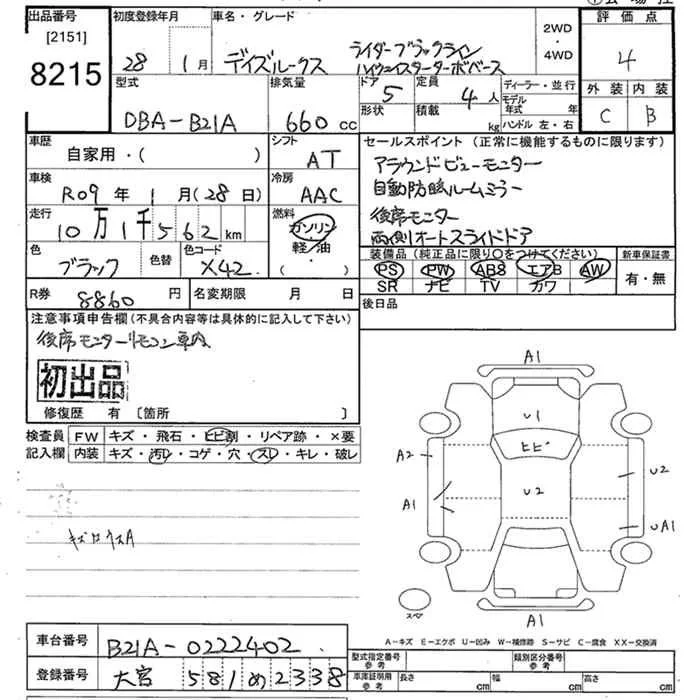 出品番号 初度登録年月 車名・グレード 評価点
[2151]
8215
28 1月 デイズルークス ライダーブラックライン
ハイウェイスターターボベース
2WD
・
4WD
4
型式 排気量 ドア 定員 ディーラー・並行 外装 内装
DBA-B21A 660cc 5 4人 モデル年式 年 C B
形状 積載 kg ハンドル 左・右
車歴 シフト セールスポイント (正常に機能するものに限ります)
自家用・( ) AT アラウンドビューモニター
車検 冷房 自動防眩ルームミラー
R09年 1月(28日) AAC 後席モニター
走行 燃料 両側オートスライドドア
10万1千562km ガソリン
軽・油
・( )
色 色替 色コード 装備品(純正品に限り○をつけてください) 新車保証書
ブラック X42 PS PW ABS エアB AW 有・無
SR ナビ TV カワ
R券 8860円 名変期限 月 日 後日品
注意事項申告欄 (不具合内容等は具体的に記入して下さい)
後席モニターリモコン車内
初出品
修復歴 有 [箇所 ]
検査員 FW キズ・飛石・ヒビ割・リペア跡・×要
記入欄 内装 キズ・汚レ・コゲ・穴・スレ・キレ・破レ
A1
U1
ヒビ
A2
U2
U2
A1
UA1
A1
スペア
A-キズ E-エクボ U-凹み W-補修跡 S-サビ C-腐食 XX-交換済
車台番号 B21A-0222402
登録番号 大宮 581 め 2338
型式指定番号 参考 類別区分番号 参考
車庫証明用 参考 長さ cm 幅 cm 高さ cm